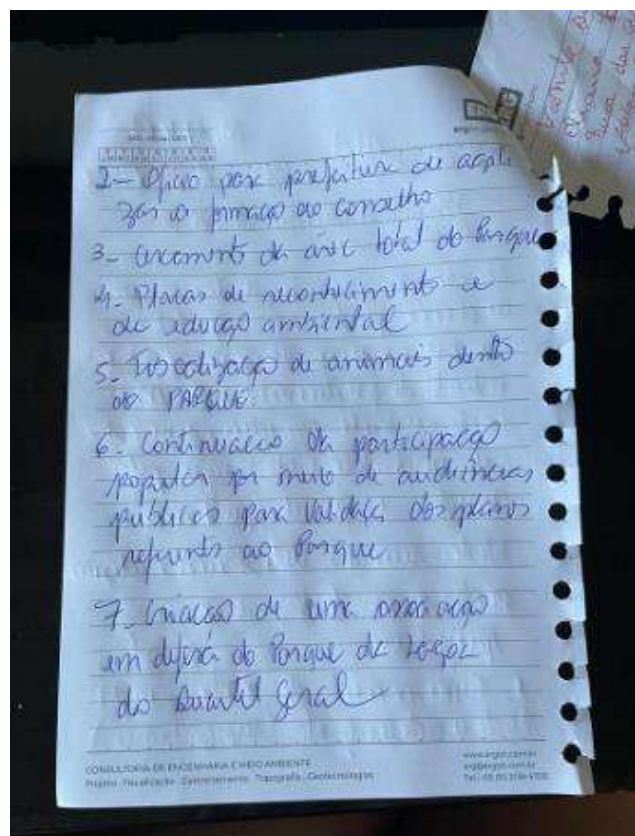 2- Ofício para prefeitura de agili
zar a formação do conselho
3- Cercamento da área total do Parque
4- Placas de reconhecimento e
de educação ambiental
5- Fiscalização de animais dentro
do PARQUE
6- Continuação da participação
popular por meio de audiências
públicas para validação dos planos
referente ao Parque
7- Criação de uma associação
em defesa do Parque da Lagoa
do Quartel Geral
CONSULTORIA DE ENGENHARIA E MEIO AMBIENTE
Projeto . Fiscalização . Gerenciamento . Topografia . Geotecnologias